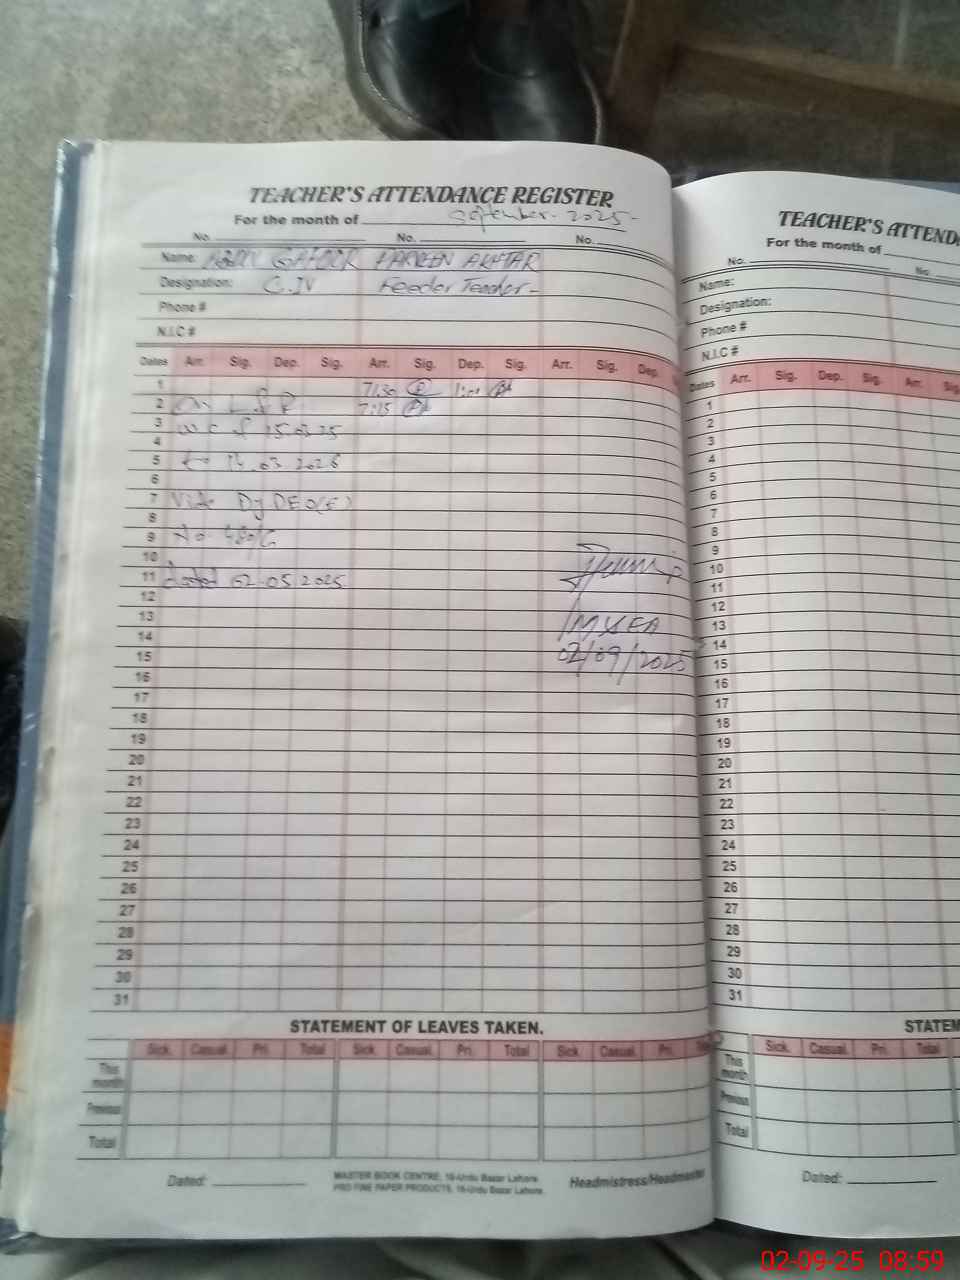 TEACHER'S ATTENDANCE REGISTER
For the month of September - 2025 -
No. No. No.
Name: ABDUL GAFOOR PARVEEN AKHTAR
Designation: C.IV Feeder Teacher -
Phone #
N.I.C #
Dates Arr. Sig. Dep. Sig. Arr. Sig. Dep. Sig. Arr. Sig. Dep.
1 7:30 1:00
2 On L.P.R 7:15
3 w.e.f 15.03.25
4
5 to 14.03.2026
6
7 Vide Dy DEO(E)
8
9 No 480/G
10
11 dated 02.05.2025
12
13
14
15
16
17
18
19
20
21
22
23
24
25
26
27
28
29
30
31
M&EA
02/09/2025
STATEMENT OF LEAVES TAKEN.
Sick. Casual. Pri. Total Sick. Casual. Pri. Total Sick. Casual. Pri.
This month
Previous
Total
Dated:
MASTER BOOK CENTRE, 16-Urdu Bazar Lahore.
PRO FINE PAPER PRODUCTS, 16-Urdu Bazar Lahore.
Headmistress/Headmaster
TEACHER'S ATTEND
For the month of
No. No.
Name:
Designation:
Phone #
N.I.C #
Dates Arr. Sig. Dep. Sig. Arr. Sig.
1
2
3
4
5
6
7
8
9
10
11
12
13
14
15
16
17
18
19
20
21
22
23
24
25
26
27
28
29
30
31
STATEM
Sick. Casual. Pri. Total
This month
Previous
Total
Dated:
02-09-25 08:59